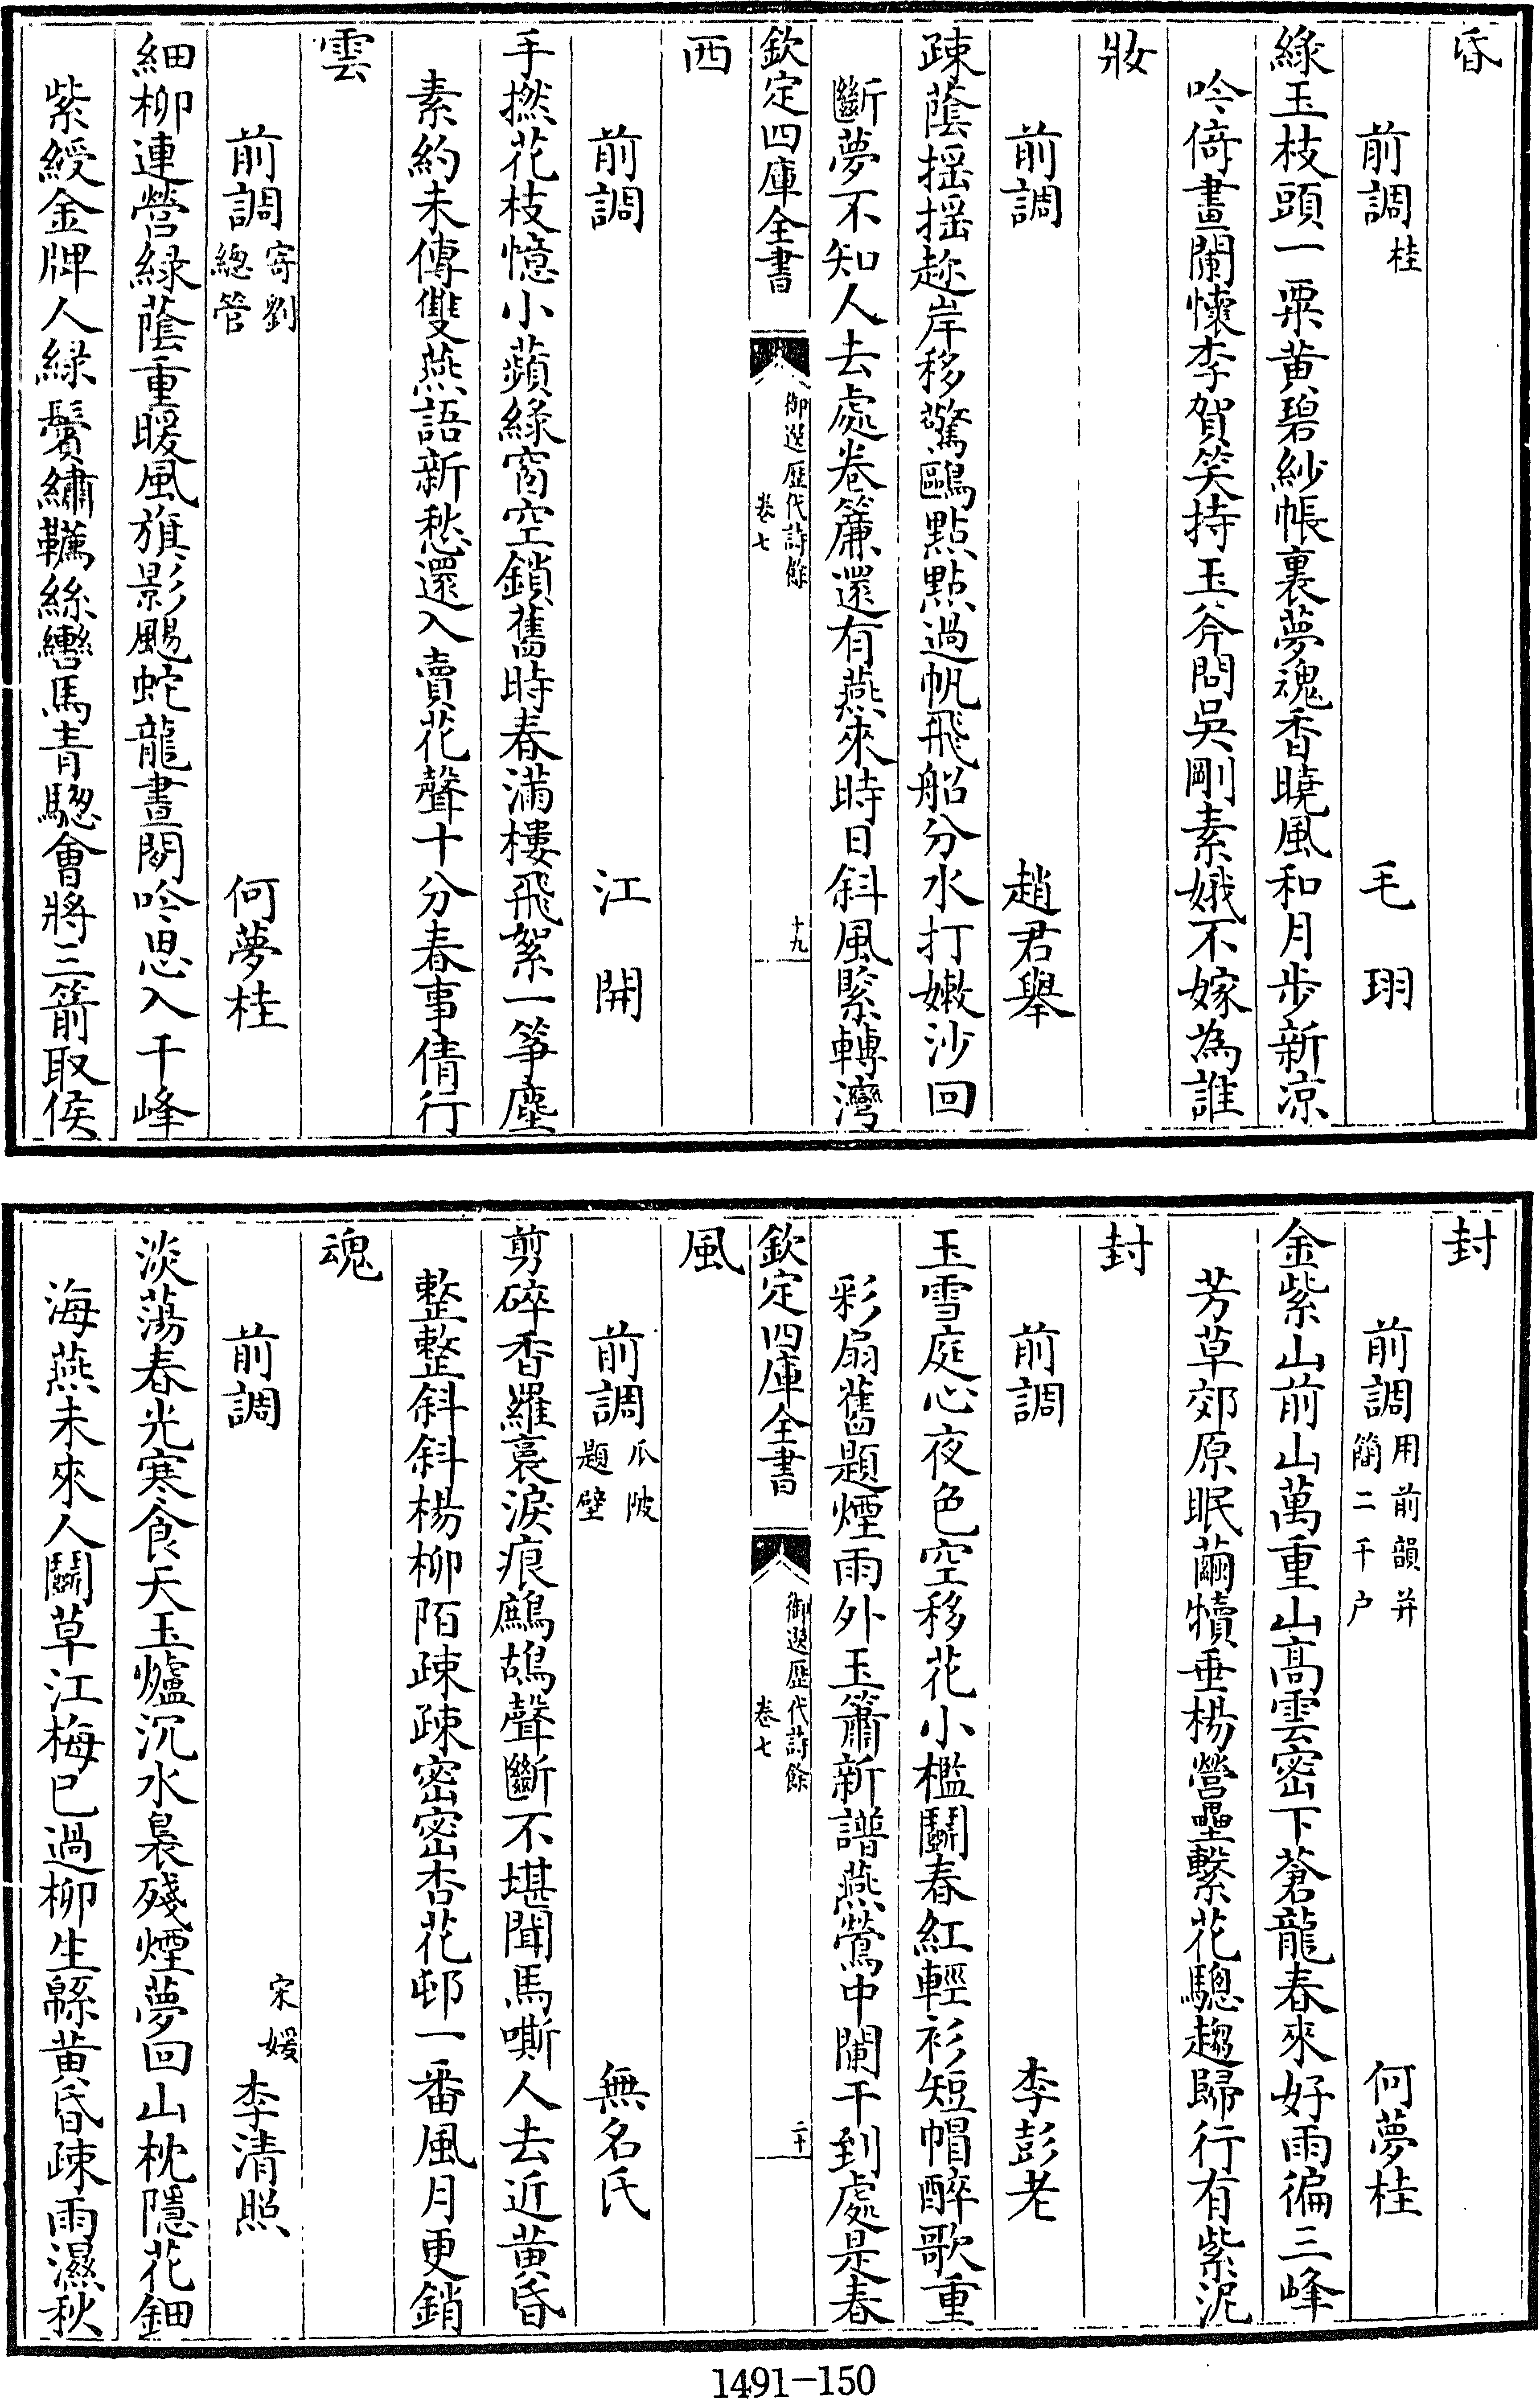 昏
前調桂　毛珝
綠玉枝頭一粟黄碧紗帳裏夢魂香曉風和月步新凉
吟倚畫闌懷李賀笑持玉斧問吳剛素娥不嫁為誰
妝
前調　趙君舉
疎蔭搖搖趁岸移驚鷗點點過帆飛船分水打嫩沙回
斷夢不知人去處卷簾還有燕來時日斜風緊轉灣
欽定四庫全書　御選歷代詩餘卷七　十九
西
前調　江開
手撚花枝憶小蘋緑窗空鎖舊時春滿樓飛絮一箏塵
素約未傳雙燕語新愁還入賣花聲十分春事倩行
雲
前調寄劉總管　何夢桂
細柳連營緑蔭重暖風旗影颺蛇龍晝閒吟思入千峰
紫綬金牌人緑鬢繡韉絲轡馬青驄會將三箭取侯
封
前調用前韻并簡二千户　何夢桂
金紫山前山萬重山高雲密下蒼龍春來好雨徧三峰
芳草郊原眠繭犢垂楊營壘繫花驄趨歸行有紫泥
封
前調　李彭老
玉雪庭心夜色空移花小檻鬭春紅輕衫短帽醉歌重
彩扇舊題煙雨外玉簫新譜燕鶯中闌干到處是春
欽定四庫全書　御選歷代詩餘卷七　二十
風
前調瓜陂題壁　無名氏
剪碎香羅裛淚痕鷓鴣聲斷不堪聞馬嘶人去近黄昏
整整斜斜楊柳陌疎疎密密杏花邨一番風月更銷
魂
前調　宋媛李清照
淡蕩春光寒食天玉爐沉水裊殘煙夢回山枕隱花鈿
海燕未來人鬭草江梅已過柳生緜黄昏疎雨濕秋
1491-150